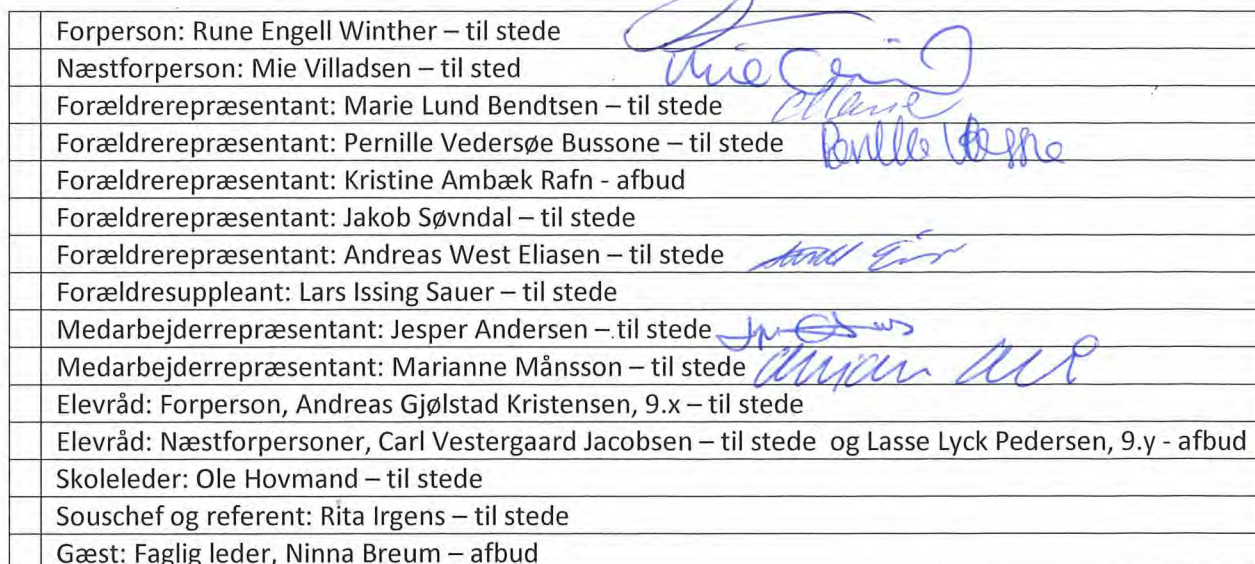 Forperson: Rune Engell Winther – til stede
Næstforperson: Mie Villadsen – til sted
Mie
Forældrerepræsentant: Marie Lund Bendtsen – til stede
Marie
Forældrerepræsentant: Pernille Vedersøe Bussone – til stede
Pernille
Forældrerepræsentant: Kristine Ambæk Rafn - afbud
Forældrerepræsentant: Jakob Søvndal – til stede
Forældrerepræsentant: Andreas West Eliasen – til stede
Forældresuppleant: Lars Issing Sauer – til stede
Medarbejderrepræsentant: Jesper Andersen – til stede
Medarbejderrepræsentant: Marianne Månsson – til stede
Elevråd: Forperson, Andreas Gjølstad Kristensen, 9.x – til stede
Elevråd: Næstforpersoner, Carl Vestergaard Jacobsen – til stede og Lasse Lyck Pedersen, 9.y - afbud
Skoleleder: Ole Hovmand – til stede
Souschef og referent: Rita Irgens – til stede
Gæst: Faglig leder, Ninna Breum – afbud